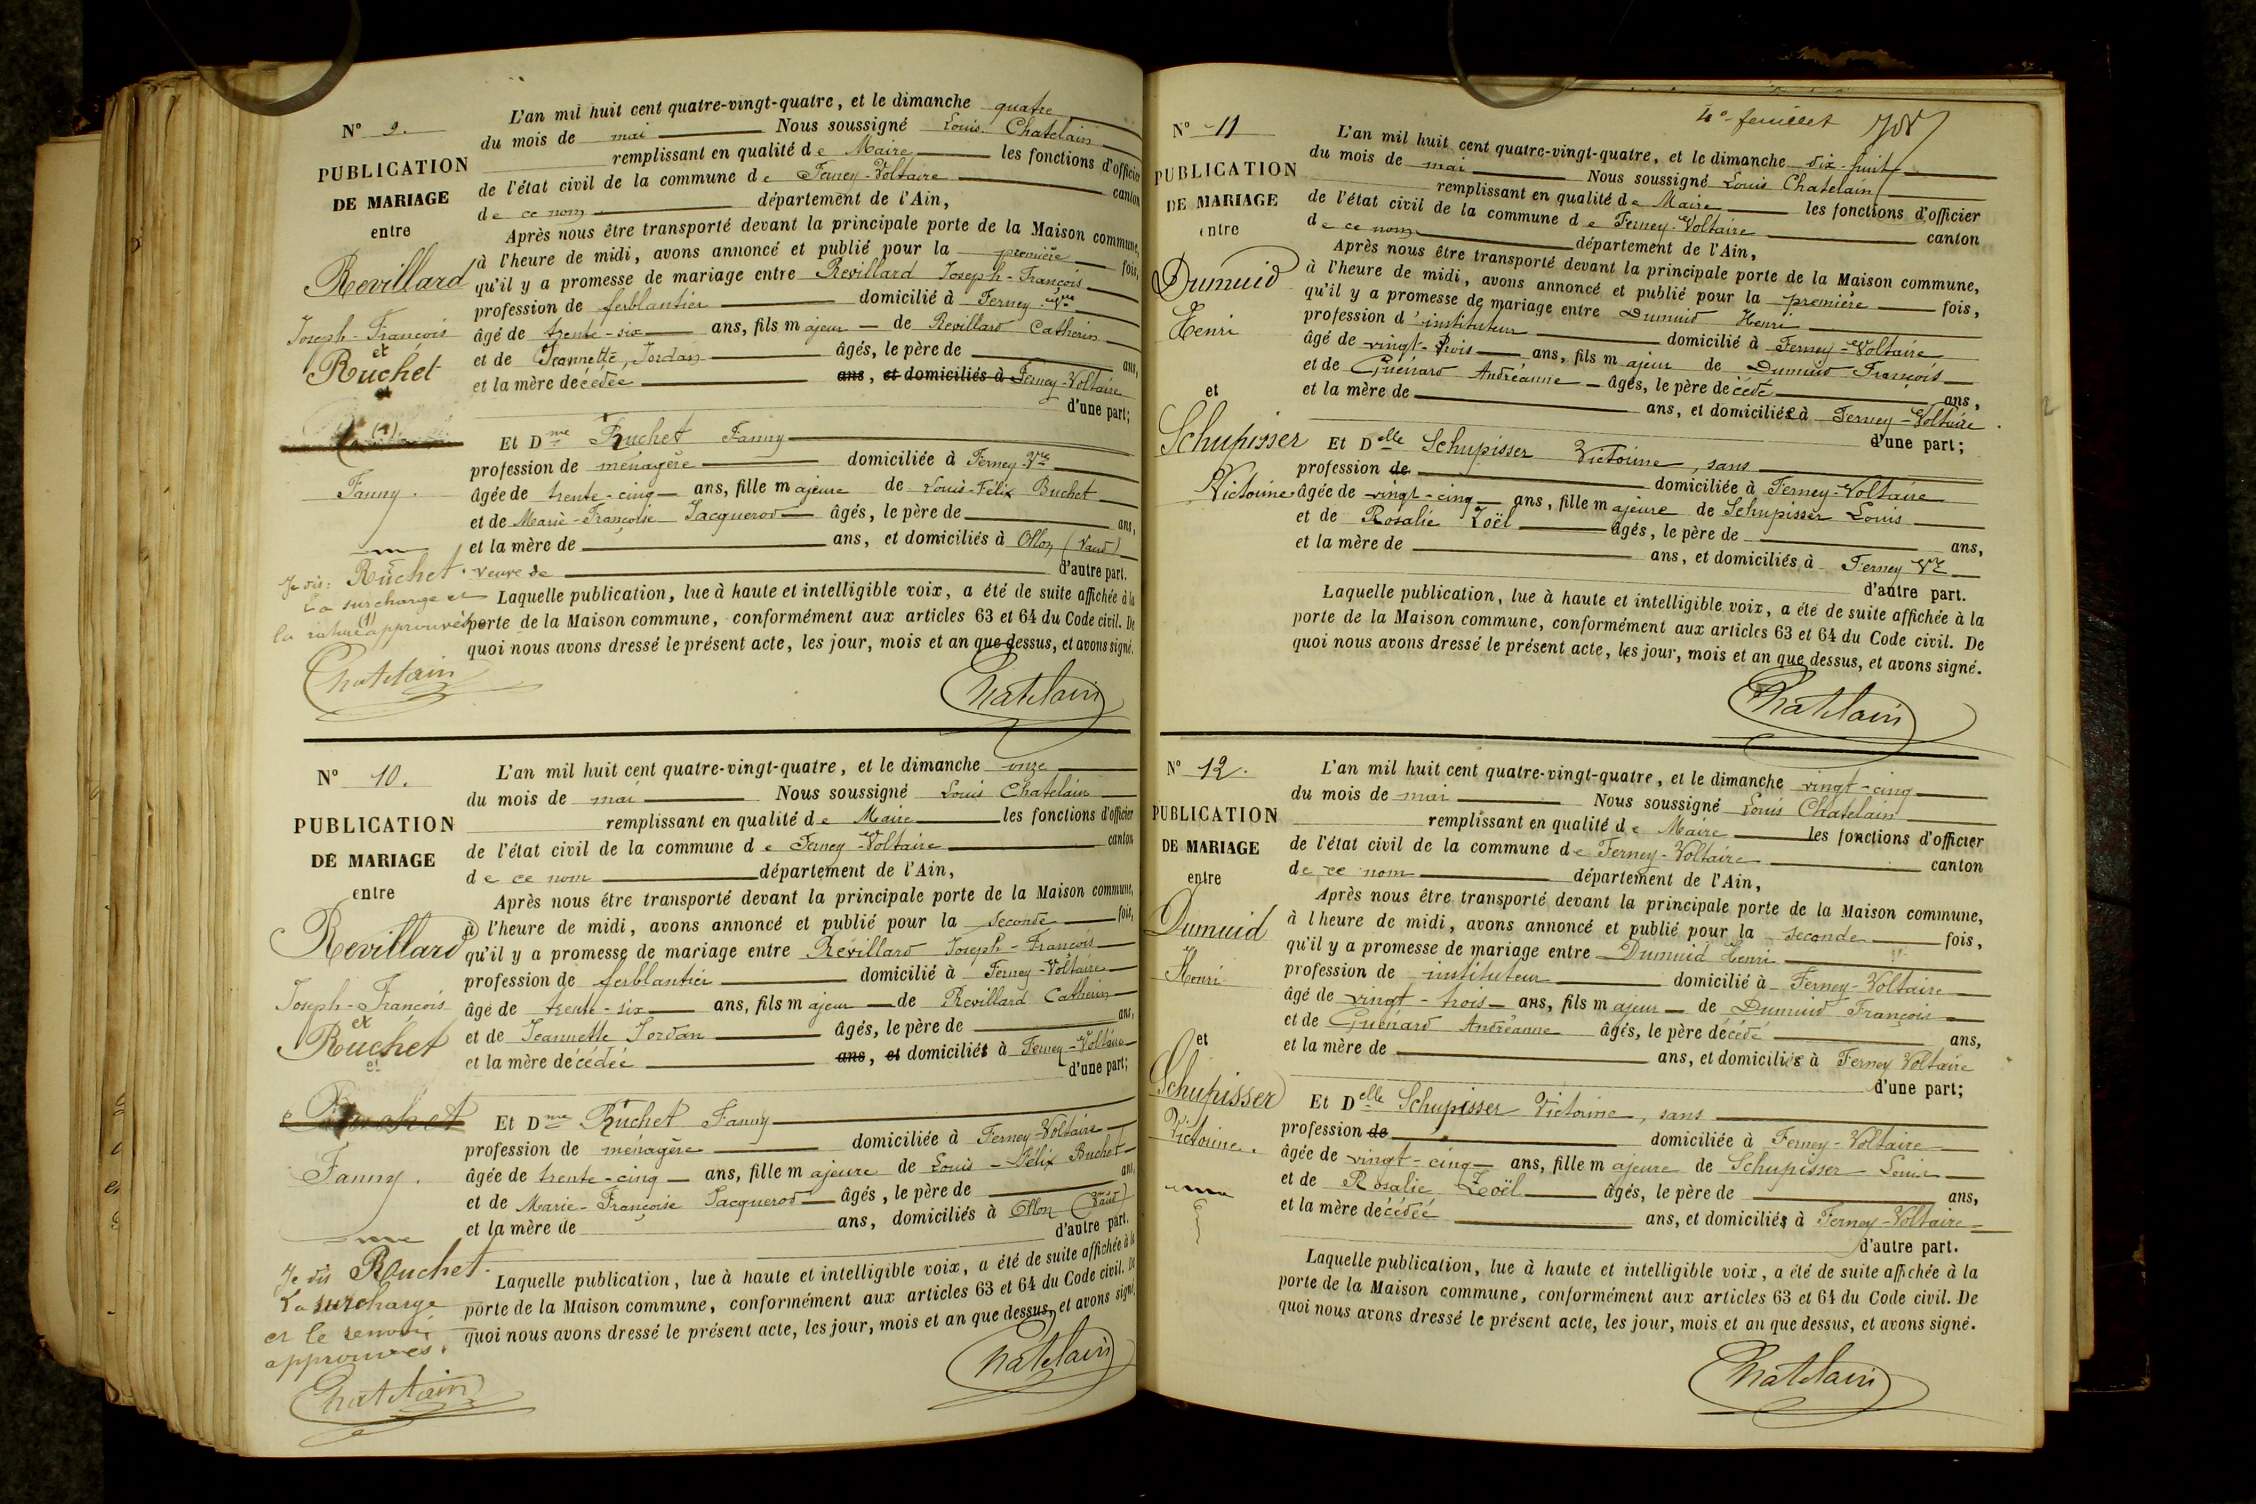 N° 9.
PUBLICATION
DE MARIAGE
entre
Revillard
Joseph-François
et
Ruchet
(1)
Fanny.
Je dis: Ruchet.
La surcharge et
la rature (1) approuvées
Chatelain
L'an mil huit cent quatre-vingt-quatre, et le dimanche quatre
du mois de mai Nous soussigné Louis Chatelain
remplissant en qualité de Maire les fonctions d'officier
de l'état civil de la commune de Ferney-Voltaire canton
de ce nom département de l'Ain,
Après nous être transporté devant la principale porte de la Maison commune,
à l'heure de midi, avons annoncé et publié pour la première fois,
qu'il y a promesse de mariage entre Revillard Joseph-François
profession de ferblantier domicilié à Ferney-Vre
âgé de trente-six ans, fils majeur de Revillard Catherin
et de Jeannette, Jordan âgés, le père de ans,
et la mère décédée ans, et domiciliés à Ferney-Voltaire
d'une part;
Et Dme Ruchet Fanny
profession de ménagère domiciliée à Ferney-Vre
âgée de trente-cinq ans, fille majeure de Louis-Félix Buchet
et de Marie-Françoise Jacquerod âgés, le père de ans,
et la mère de ans, et domiciliés à Ollon (Vaud)
veuve de d'autre part.
Laquelle publication, lue à haute et intelligible voix, a été de suite affichée à la
porte de la Maison commune, conformément aux articles 63 et 64 du Code civil. De
quoi nous avons dressé le présent acte, les jour, mois et an que dessus, et avons signé.
Chatelain
N° 10.
PUBLICATION
DE MARIAGE
entre
Revillard
Joseph-François
et
Ruchet
Fanny.
Je dis Ruchet.
La surcharge
et le renvoi
approuvés.
Chatelain
L'an mil huit cent quatre-vingt-quatre, et le dimanche onze
du mois de mai Nous soussigné Louis Chatelain
remplissant en qualité de Maire les fonctions d'officier
de l'état civil de la commune de Ferney-Voltaire canton
de ce nom département de l'Ain,
Après nous être transporté devant la principale porte de la Maison commune,
à l'heure de midi, avons annoncé et publié pour la seconde fois,
qu'il y a promesse de mariage entre Revillard Joseph-François
profession de ferblantier domicilié à Ferney-Voltaire
âgé de trente-six ans, fils majeur de Revillard Catherin
et de Jeannette Jordan âgés, le père de ans,
et la mère décédée ans, et domiciliés à Ferney-Voltaire
d'une part;
Et Dme Ruchet Fanny
profession de ménagère domiciliée à Ferney-Voltaire
âgée de trente-cinq ans, fille majeure de Louis-Félix Buchet
et de Marie-Françoise Jacquerod âgés, le père de ans,
et la mère de ans, domiciliés à Ollon (Vaud)
d'autre part.
Laquelle publication, lue à haute et intelligible voix, a été de suite affichée à la
porte de la Maison commune, conformément aux articles 63 et 64 du Code civil. De
quoi nous avons dressé le présent acte, les jour, mois et an que dessus, et avons signé.
Chatelain
4e feuillet
N° 11
PUBLICATION
DE MARIAGE
entre
Dumuid
Henri
et
Schupisser
Victorine
L'an mil huit cent quatre-vingt-quatre, et le dimanche dix-huit
du mois de mai Nous soussigné Louis Chatelain
remplissant en qualité de Maire les fonctions d'officier
de l'état civil de la commune de Ferney-Voltaire canton
de ce nom département de l'Ain,
Après nous être transporté devant la principale porte de la Maison commune,
à l'heure de midi, avons annoncé et publié pour la première fois,
qu'il y a promesse de mariage entre Dumuid Henri
profession d'instituteur domicilié à Ferney-Voltaire
âgé de vingt-trois ans, fils majeur de Dumuid François
et de Guénard Andréanne âgés, le père décédé ans,
et la mère de ans, et domiciliée à Ferney-Voltaire
d'une part;
Et Delle Schupisser Victorine, sans
profession de domiciliée à Ferney-Voltaire
âgée de vingt-cinq ans, fille majeure de Schupisser Louis
et de Rosalie Zoël âgés, le père de ans,
et la mère de ans, et domiciliés à Ferney Vre
d'autre part.
Laquelle publication, lue à haute et intelligible voix, a été de suite affichée à la
porte de la Maison commune, conformément aux articles 63 et 64 du Code civil. De
quoi nous avons dressé le présent acte, les jour, mois et an que dessus, et avons signé.
Chatelain
N° 12.
PUBLICATION
DE MARIAGE
entre
Dumuid
Henri
et
Schupisser
Victorine.
L'an mil huit cent quatre-vingt-quatre, et le dimanche vingt-cinq
du mois de mai Nous soussigné Louis Chatelain
remplissant en qualité de Maire les fonctions d'officier
de l'état civil de la commune de Ferney-Voltaire canton
de ce nom département de l'Ain,
Après nous être transporté devant la principale porte de la Maison commune,
à l'heure de midi, avons annoncé et publié pour la seconde fois,
qu'il y a promesse de mariage entre Dumuid Henri
profession de instituteur domicilié à Ferney-Voltaire
âgé de vingt-trois ans, fils majeur de Dumuid François
et de Guénard Andréanne âgés, le père décédé ans,
et la mère de ans, et domiciliée à Ferney Voltaire
d'une part;
Et Delle Schupisser Victorine, sans
profession de domiciliée à Ferney-Voltaire
âgée de vingt-cinq ans, fille majeure de Schupisser Louis
et de Rosalie Zoël âgés, le père de ans,
et la mère décédée ans, et domiciliés à Ferney-Voltaire
d'autre part.
Laquelle publication, lue à haute et intelligible voix, a été de suite affichée à la
porte de la Maison commune, conformément aux articles 63 et 64 du Code civil. De
quoi nous avons dressé le présent acte, les jour, mois et an que dessus, et avons signé.
Chatelain